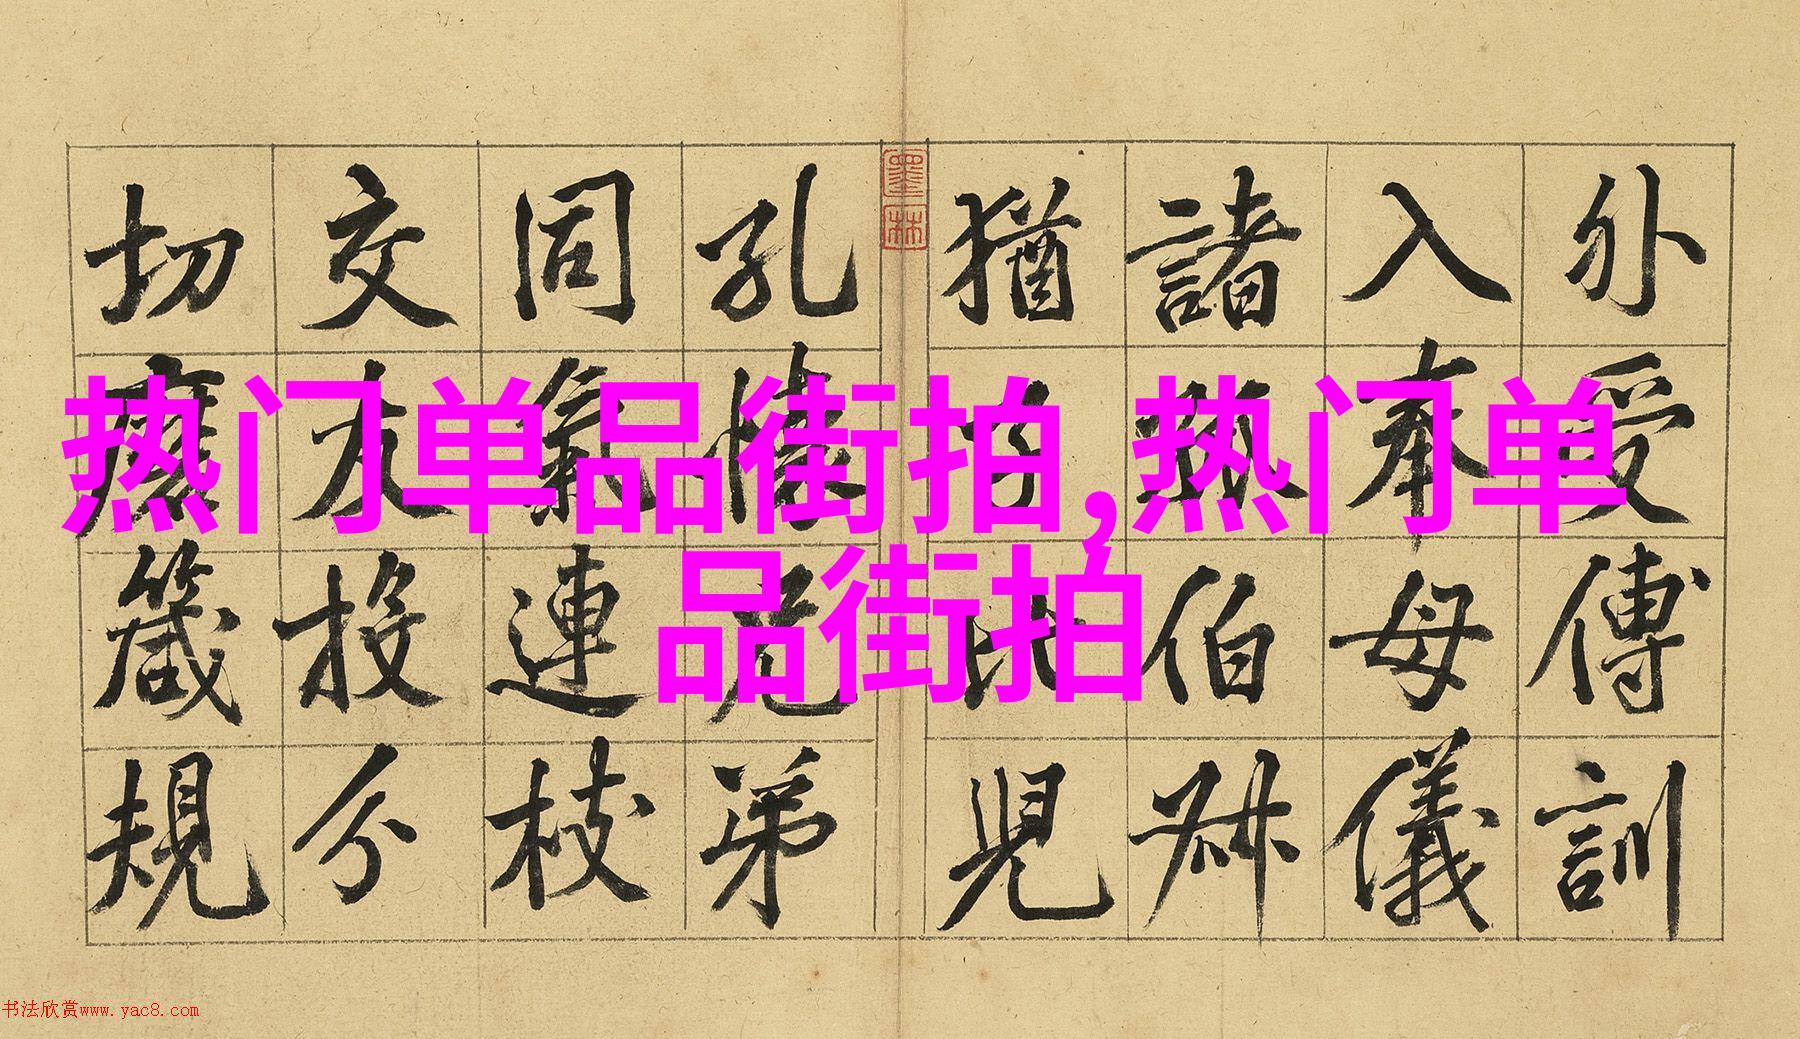 热门单品街拍,热门单
品街拍
外受傅訓
入奉母儀
諸姑伯叔
猶子比兒
孔懷兄弟
同氣連枝
交友投分
切磨箴規
墨林
书法欣赏www.yac8.com